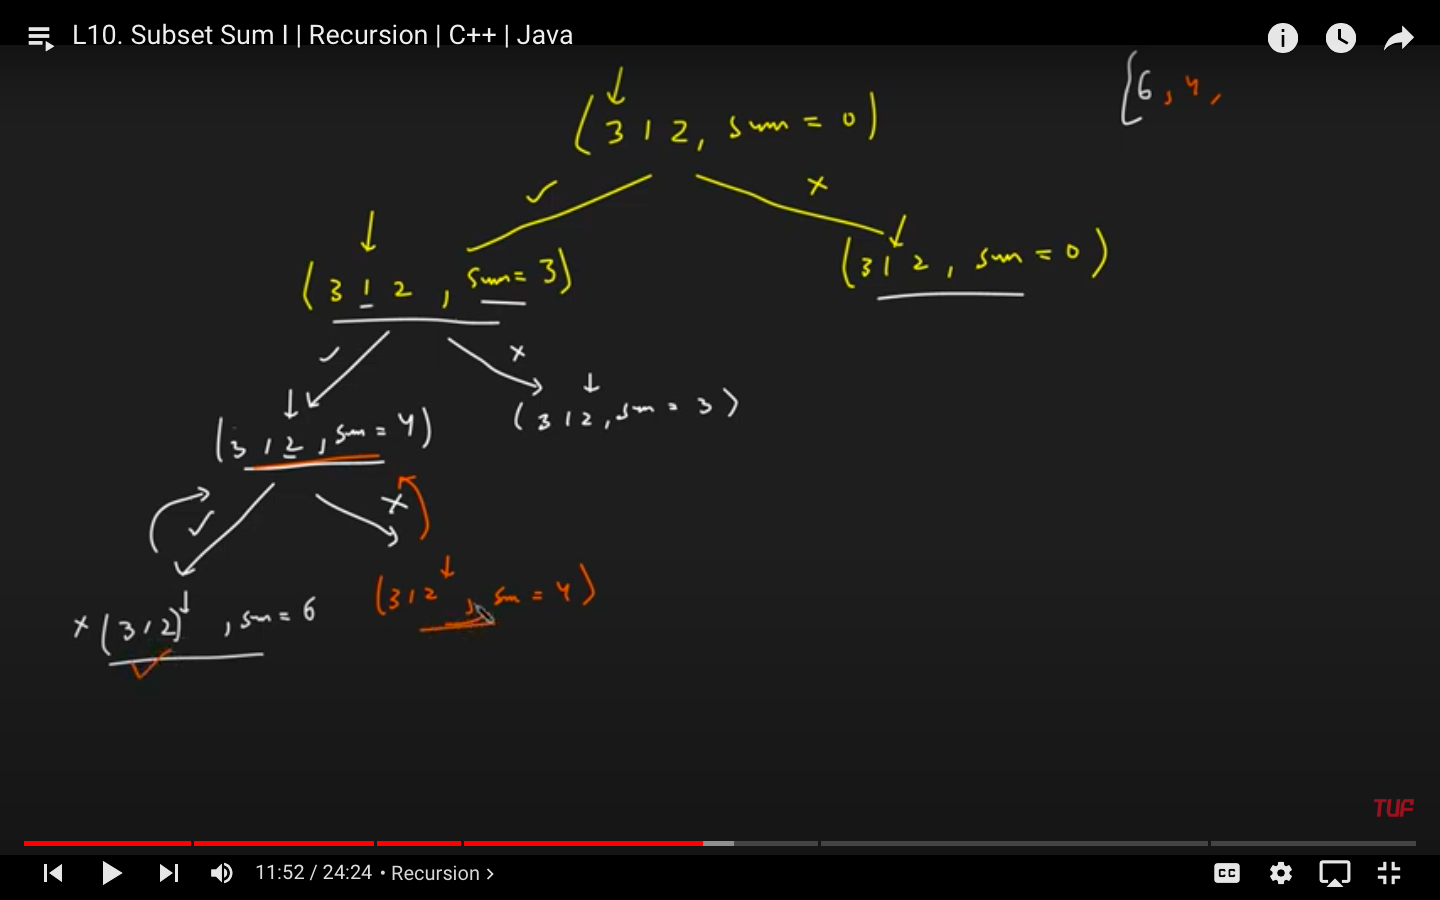 L10. Subset Sum I | Recursion | C++ | Java
[6, 4,
(3 1 2, sum = 0)
✓ ×
(3 1 2, sum = 3) (3 1 2, sum = 0)
✓ ×
(3 1 2, sum = 4) (3 1 2, sum = 3)
✓ ×
× (3 1 2), sum = 6 (3 1 2, sum = 4)
✓
TUF
11:52 / 24:24 • Recursion >
CC